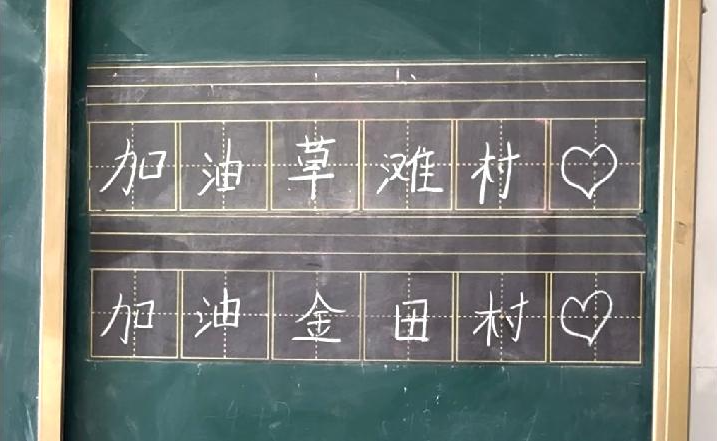 加油草滩村♡
加油金田村♡